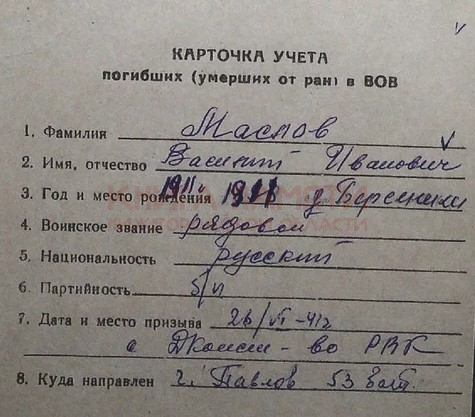 КАРТОЧКА УЧЕТА
погибших (умерших от ран) в ВОВ
1. Фамилия Маслов
2. Имя, отчество Василий Иванович
3. Год и место рождения 1911 д. Березники
4. Воинское звание рядовой
5. Национальность русский
6. Партийность б/п
7. Дата и место призыва 26/VI-41г
РВК
8. Куда направлен г. Павлов 53 бат.